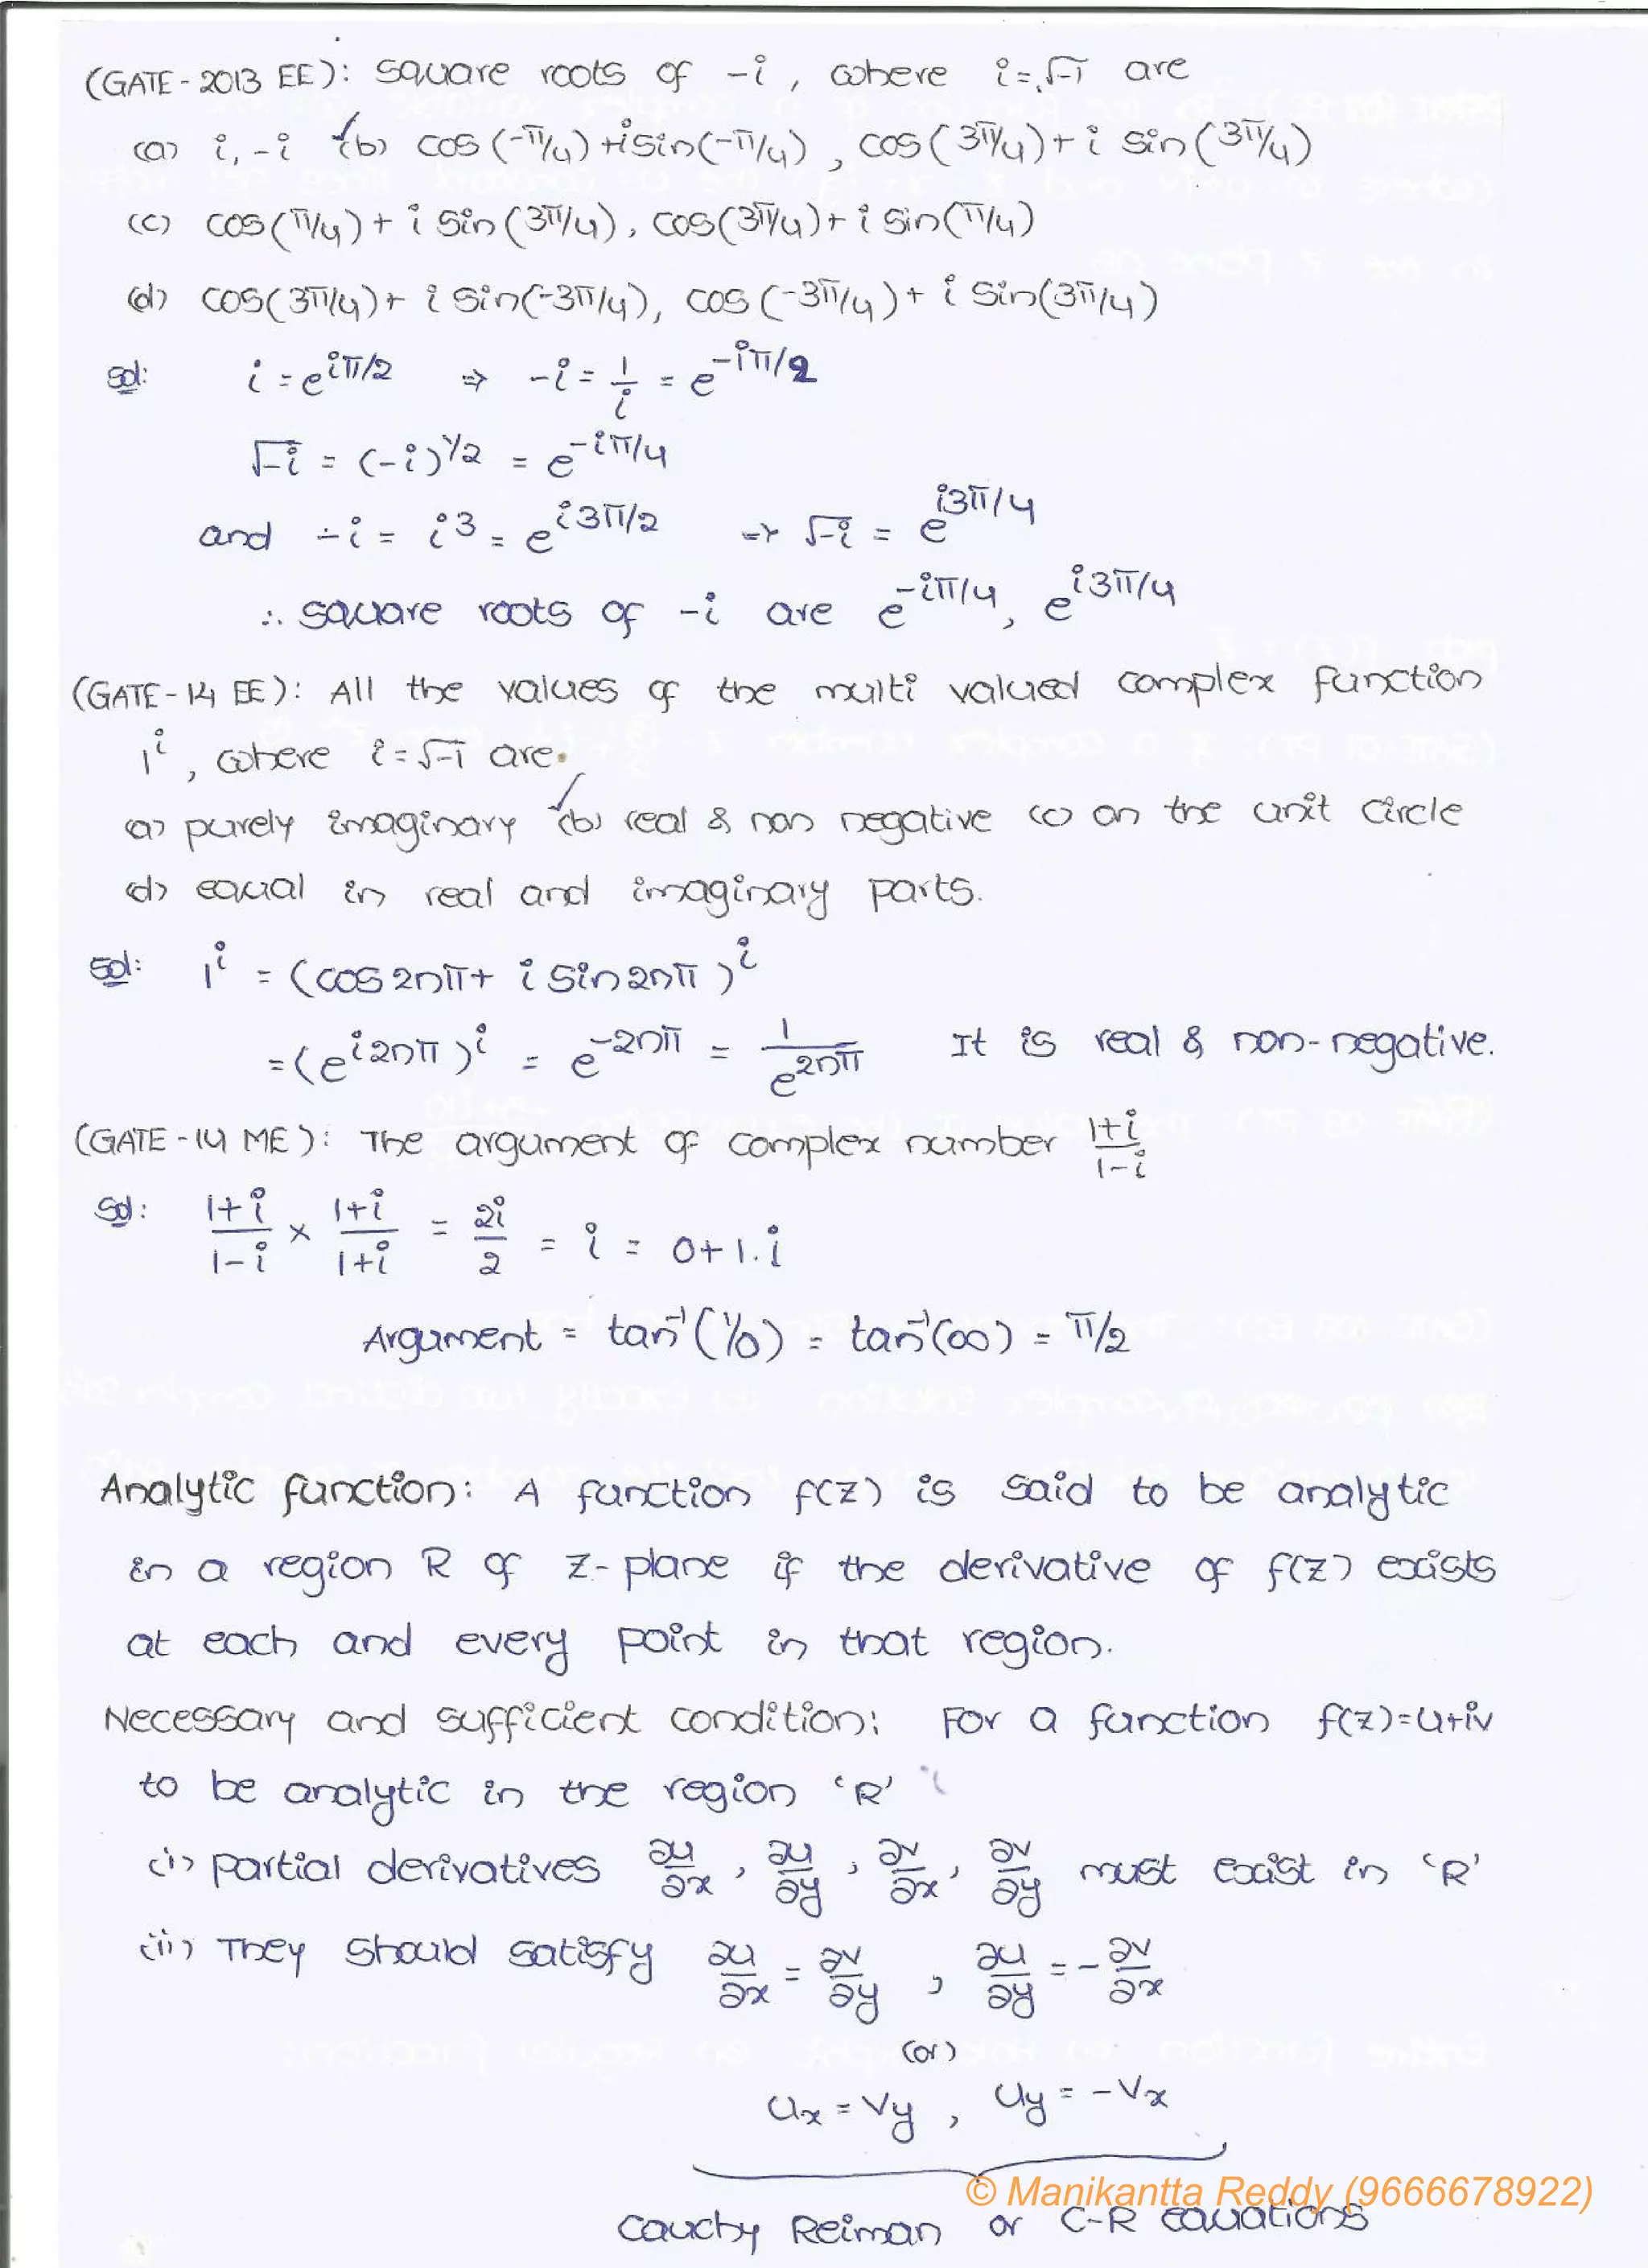 (GATE-2013 EE): square roots of -i, where i=√-1 are
(a) i, -i (b) cos(-π/4)+isin(-π/4), cos(3π/4)+i sin(3π/4)
(c) cos(π/4)+i sin(3π/4), cos(3π/4)+i sin(π/4)
(d) cos(3π/4)+i sin(-3π/4), cos(-3π/4)+i sin(3π/4)
Sol: i=e^{iπ/2} ⇒ -i=1/i=e^{-iπ/2}
√-i = (-i)^{1/2} = e^{-iπ/4}
and -i = i^3 = e^{i3π/2} ⇒ √-i = e^{i3π/4}
∴ square roots of -i are e^{-iπ/4}, e^{i3π/4}
(GATE-14 EE): All the values of the multi valued complex function
1^i, where i=√-1 are.
(a) purely imaginary (b) real & non negative (c) on the unit circle
(d) equal in real and imaginary parts.
Sol: 1^i = (cos2nπ+ i sin2nπ)^i
=(e^{i2nπ})^i = e^{-2nπ} = 1/e^{2nπ} It is real & non-negative.
(GATE-14 ME): The argument of complex number (1+i)/(1-i)
Sol: (1+i)/(1-i) × (1+i)/(1+i) = 2i/2 = i = 0+1.i
Argument = tan⁻¹(1/0) = tan⁻¹(∞) = π/2
Analytic function: A function f(z) is said to be analytic
in a region R of z-plane if the derivative of f(z) exists
at each and every point in that region.
Necessary and sufficient condition: For a function f(z)=u+iv
to be analytic in the region 'R'
(i) Partial derivatives ∂u/∂x, ∂u/∂y, ∂v/∂x, ∂v/∂y must exist in 'R'
(ii) They should satisfy ∂u/∂x = ∂v/∂y, ∂u/∂y = -∂v/∂x
(or)
Ux = Vy, Uy = -Vx
© Manikantta Reddy (9666678922)
Cauchy Reiman or C-R equations